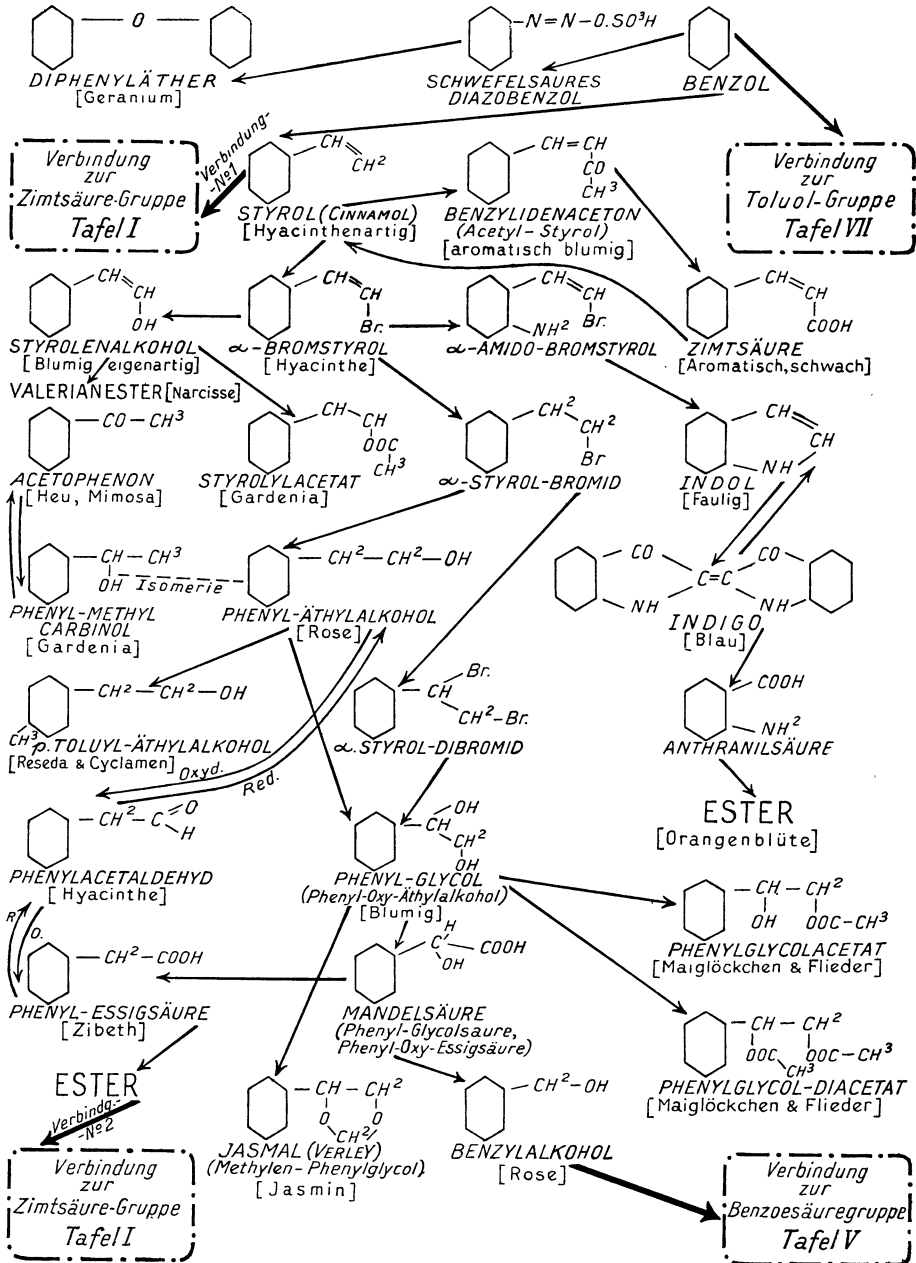 O
-N=N-O.SO³H
DIPHENYLÄTHER
[Geranium]
SCHWEFELSAURES
DIAZOBENZOL
BENZOL
Verbindung
zur
Zimtsäure-Gruppe
Tafel I
Verbindung-
-No1
CH
CH²
STYROL (CINNAMOL)
[Hyacinthenartig]
CH=CH
CO
CH³
BENZYLIDENACETON
(Acetyl-Styrol)
[aromatisch blumig]
Verbindung
zur
Toluol-Gruppe
Tafel VII
CH
CH
OH
STYROLENALKOHOL
[Blumig eigenartig]
CH
CH
Br.
α-BROMSTYROL
[Hyacinthe]
CH
CH
Br.
NH²
α-AMIDO-BROMSTYROL
CH
CH
COOH
ZIMTSÄURE
[Aromatisch, schwach]
VALERIANESTER [Narcisse]
CO-CH³
ACETOPHENON
[Heu, Mimosa]
CH
CH
OOC
CH³
STYROLYLACETAT
[Gardenia]
CH²
CH²
Br
α-STYROL-BROMID
CH
CH
NH
INDOL
[Faulig]
CH-CH³
OH Isomerie
PHENYL-METHYL
CARBINOL
[Gardenia]
CH²-CH²-OH
PHENYL-ÄTHYLALKOHOL
[Rose]
CO
CO
C=C
NH
NH
INDIGO
[Blau]
CH²-CH²-OH
CH³
p.TOLUYL-ÄTHYLALKOHOL
[Reseda & Cyclamen]
Br.
CH
CH²-Br.
α.STYROL-DIBROMID
COOH
NH²
ANTHRANILSÄURE
Oxyd.
Red.
ESTER
[Orangenblüte]
CH²-C=O
H
PHENYLACETALDEHYD
[Hyacinthe]
OH
CH
CH²
OH
PHENYL-GLYCOL
(Phenyl-Oxy-Äthylalkohol)
[Blumig]
CH-CH²
OH OOC-CH³
PHENYLGLYCOLACETAT
[Maiglöckchen & Flieder]
R.
O.
CH²-COOH
PHENYL-ESSIGSÄURE
[Zibeth]
H
C COOH
OH
MANDELSÄURE
(Phenyl-Glycolsaure,
Phenyl-Oxy-Essigsäure)
CH-CH²
OOC OOC-CH³
CH³
PHENYLGLYCOL-DIACETAT
[Maiglöckchen & Flieder]
ESTER
Verbindg.-
-No2
CH-CH²
O O
CH²
JASMAL (VERLEY)
(Methylen-Phenylglycol)
[Jasmin]
CH²-OH
BENZYLALKOHOL
[Rose]
Verbindung
zur
Zimtsäure-Gruppe
Tafel I
Verbindung
zur
Benzoesäuregruppe
Tafel V